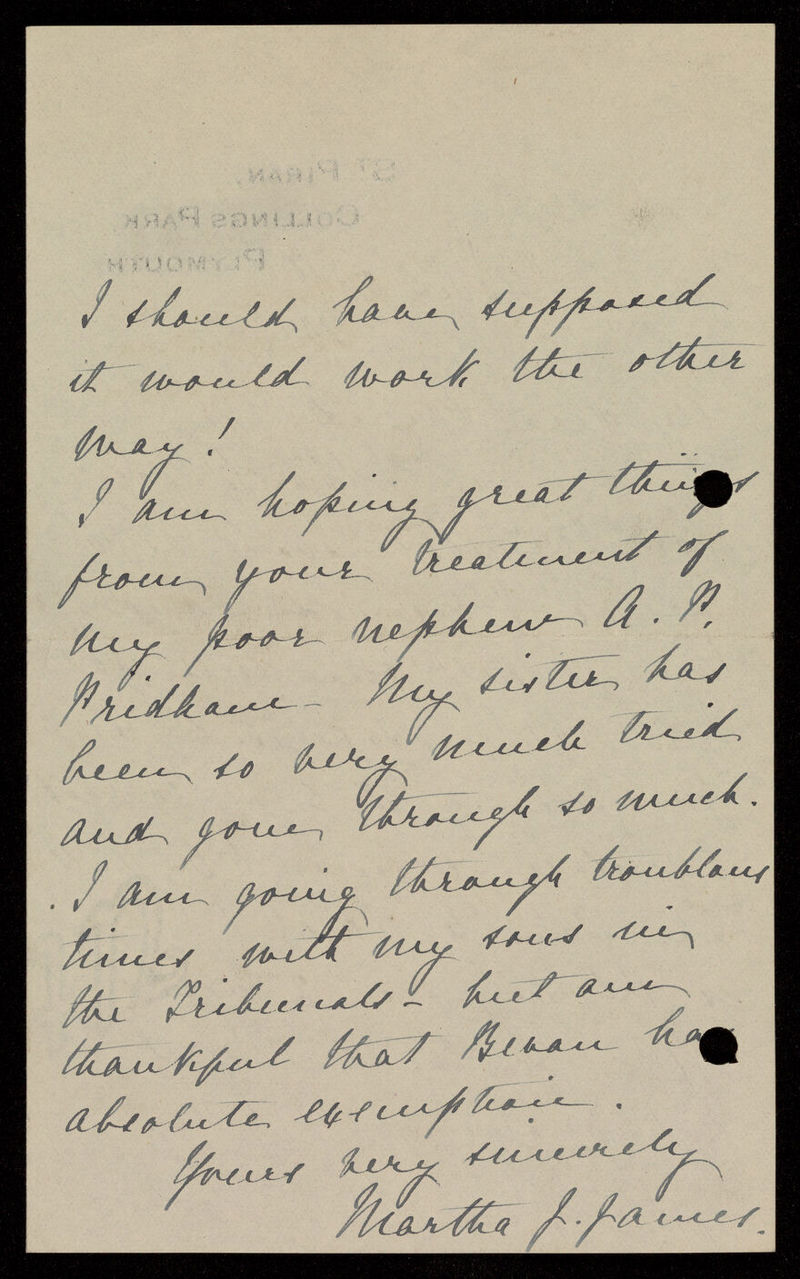 ST PIRAN,
COLLINGS PARK,
PLYMOUTH
I should have supposed
it would work the other
way!
I am hoping great things
from your treatment of
my poor nephew A. P.
Pridham - My sister has
been so very much tried
and gone through so much.
I am going through troublous
times with my sons in
the Tribunals - but am
thankful that Bevan has
absolute exemption.
Yours very sincerely
Martha J. James.